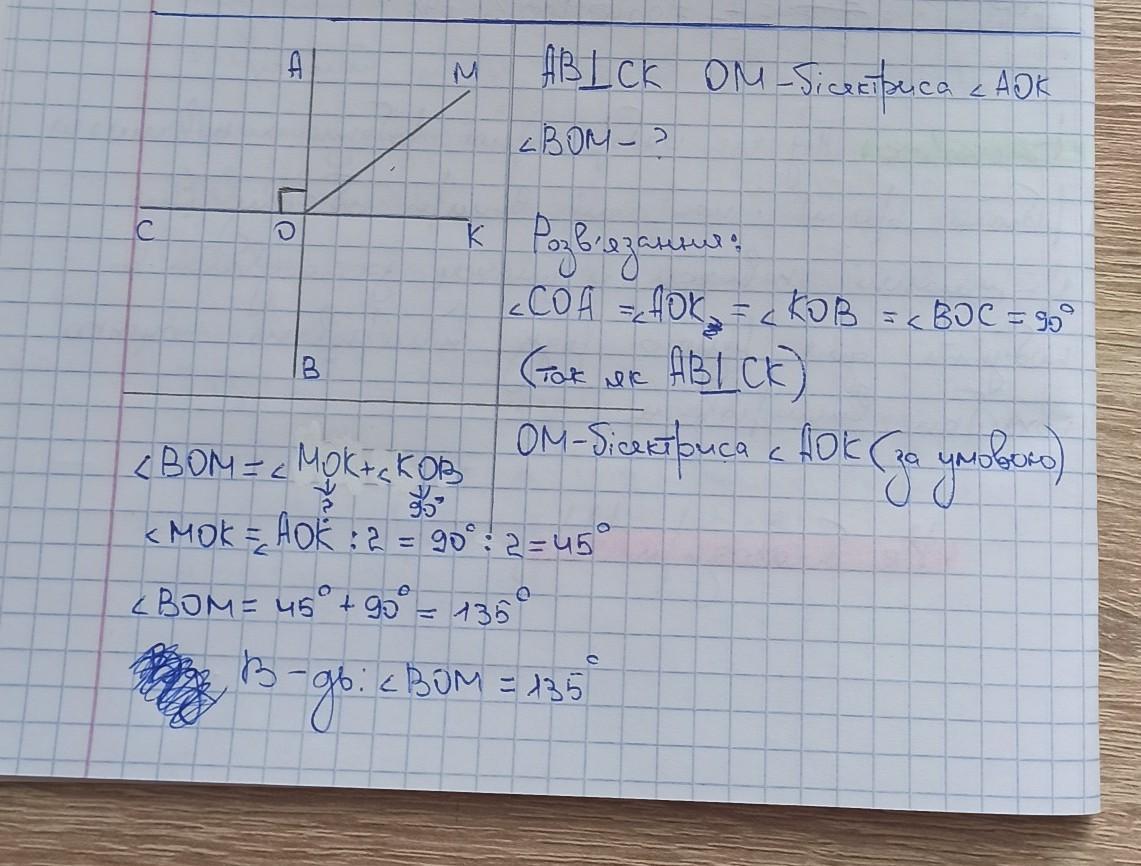 A
M
C
O
K
B
AB⊥CK OM - бісектриса ∠AOK
∠BOM - ?
Розв'язання:
∠COA = ∠AOK = ∠KOB = ∠BOC = 90°
(так як AB⊥CK)
OM - бісектриса ∠AOK (за умовою)
∠BOM = ∠MOK + ∠KOB
? 90°
∠MOK = ∠AOK : 2 = 90° : 2 = 45°
∠BOM = 45° + 90° = 135°
В-дь: ∠BOM = 135°